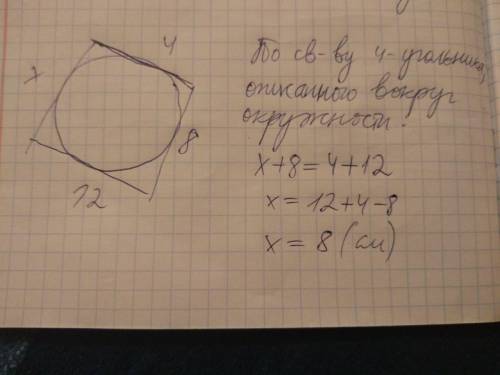 x
4
8
12
По св-ву 4-угольника,
описанного вокруг
окружности:
x+8=4+12
x = 12+4-8
x = 8 (см)